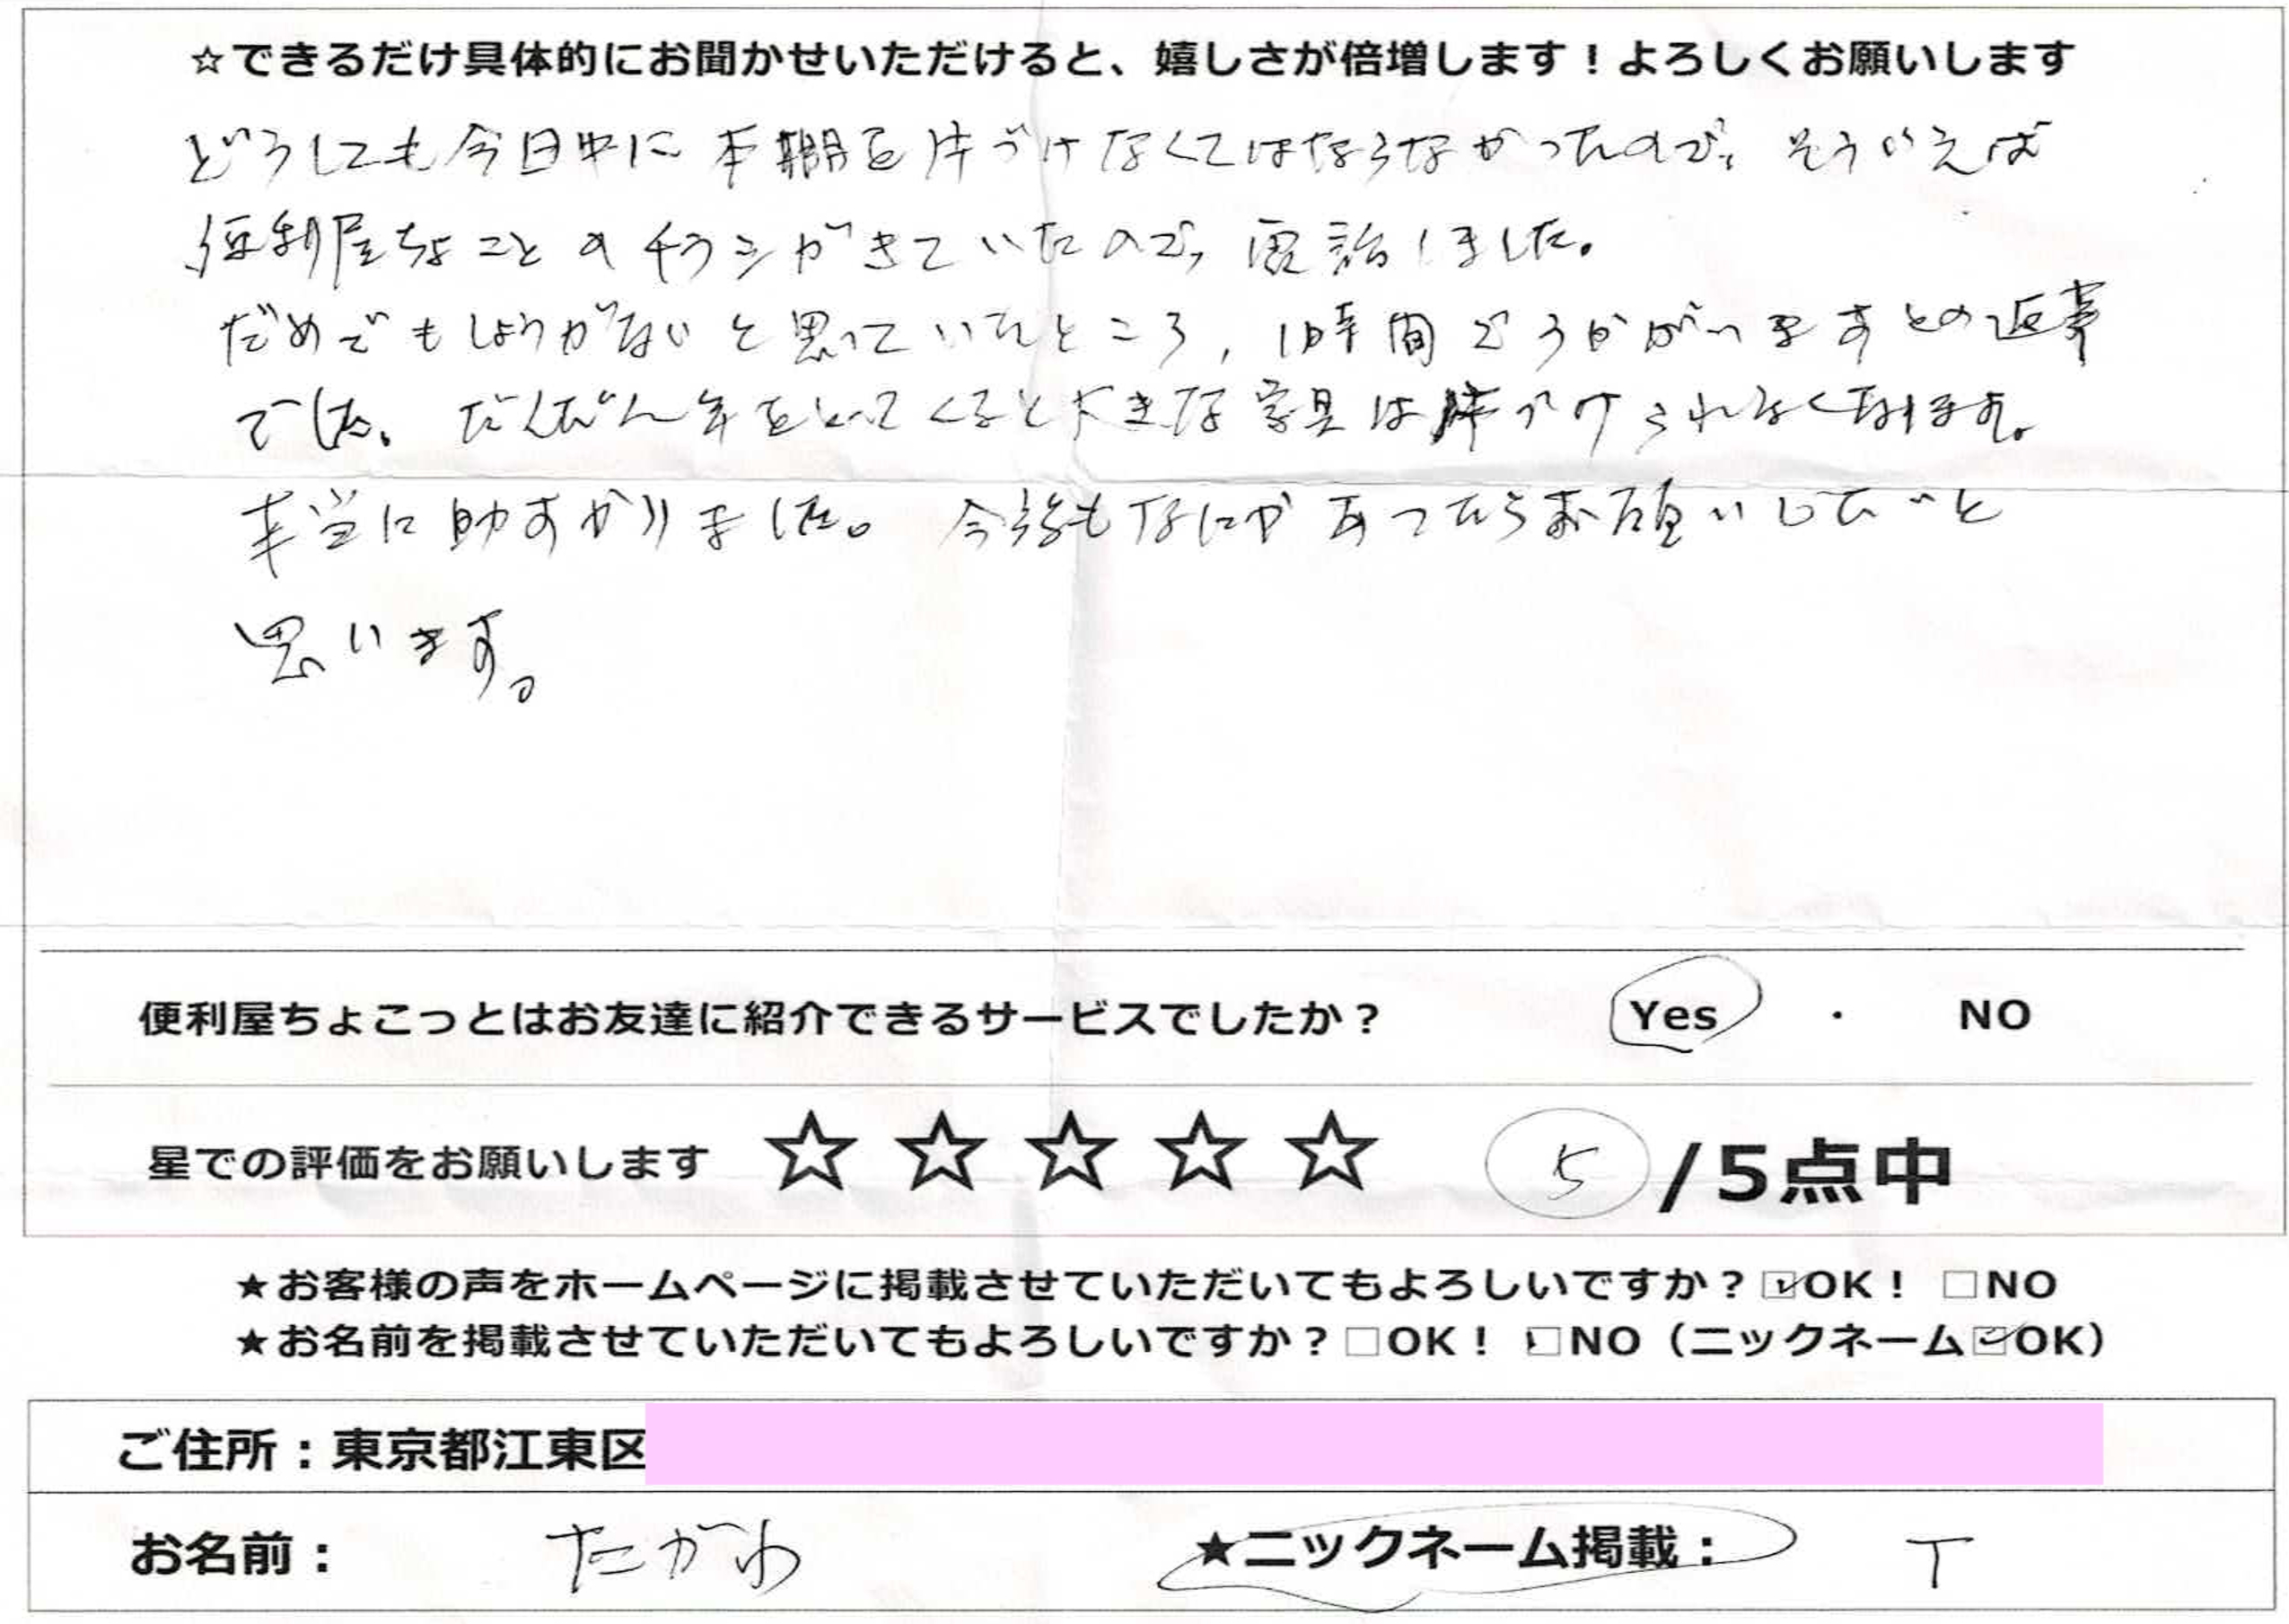 ☆できるだけ具体的にお聞かせいただけると、嬉しさが倍増します！よろしくお願いします
どうしても今日中に本棚を片づけなくてはならなかったので、そういえば
便利屋ちょことのチラシがきていたので、電話しました。
だめでもしょうがないと思っていたところ、1時間でうかがいますとの返事
でした。だんだん年をとってくると大きな家具は片づけられなくなります。
本当に助すかりました。今後もなにかあったらお願いしたいと
思います。
便利屋ちょこっとはお友達に紹介できるサービスでしたか？ Yes ・ NO
星での評価をお願いします ☆☆☆☆☆ 5 /5点中
★お客様の声をホームページに掲載させていただいてもよろしいですか？☑OK！ □NO
★お名前を掲載させていただいてもよろしいですか？□OK！ □NO（ニックネーム☑OK）
ご住所：東京都江東区
お名前： たがわ ★ニックネーム掲載： T